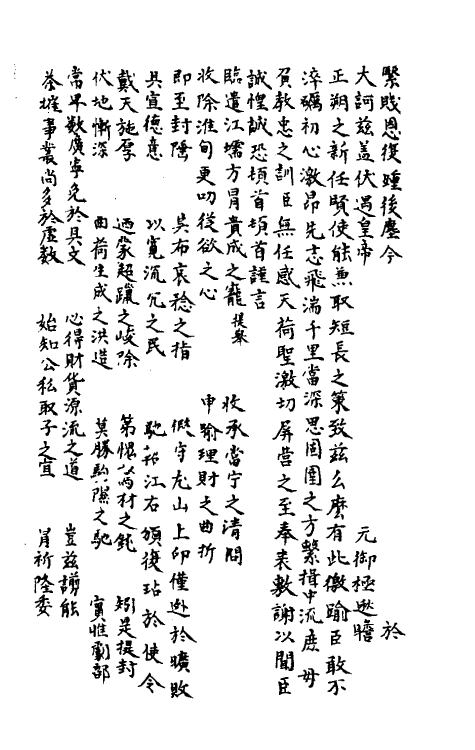 緊賤恩復踵後塵今　於
大訶茲蓋伏遇皇帝　元御極逖瞻
正朔之新任賢使能無取短長之策致茲么麼有此僥踰臣敢不
淬礪初心激昂先志飛湍千里當深思固圉之方繫揖中流庶毋
負教忠之訓臣無任感天荷聖激切屏營之至奉表敷謝以聞臣
誠惶誠恐頓首頓首謹言
臨遣江壖方冒責成之寵提舉　收承當宁之清問
收除淮甸更叨從欲之心　申喻理財之曲折
即至封陲　具布哀矜之指　假守尨山上印僅逃於曠敗
具宣德意　以寬流冗之民　馳軺江右頒復玷於使令
戴天施厚　迺蒙超躐之峻除　第懷蒿材之鈍　矧足提封
伏地慚深　曲荷生成之洪造　莫勝駒隙之馳　實惟劇部
當平歎廣寧免於具文　心得財貨源流之道　豈茲謭能
荼搉事叢尚多於虛數　始知公私取予之宜　肖祈隆委